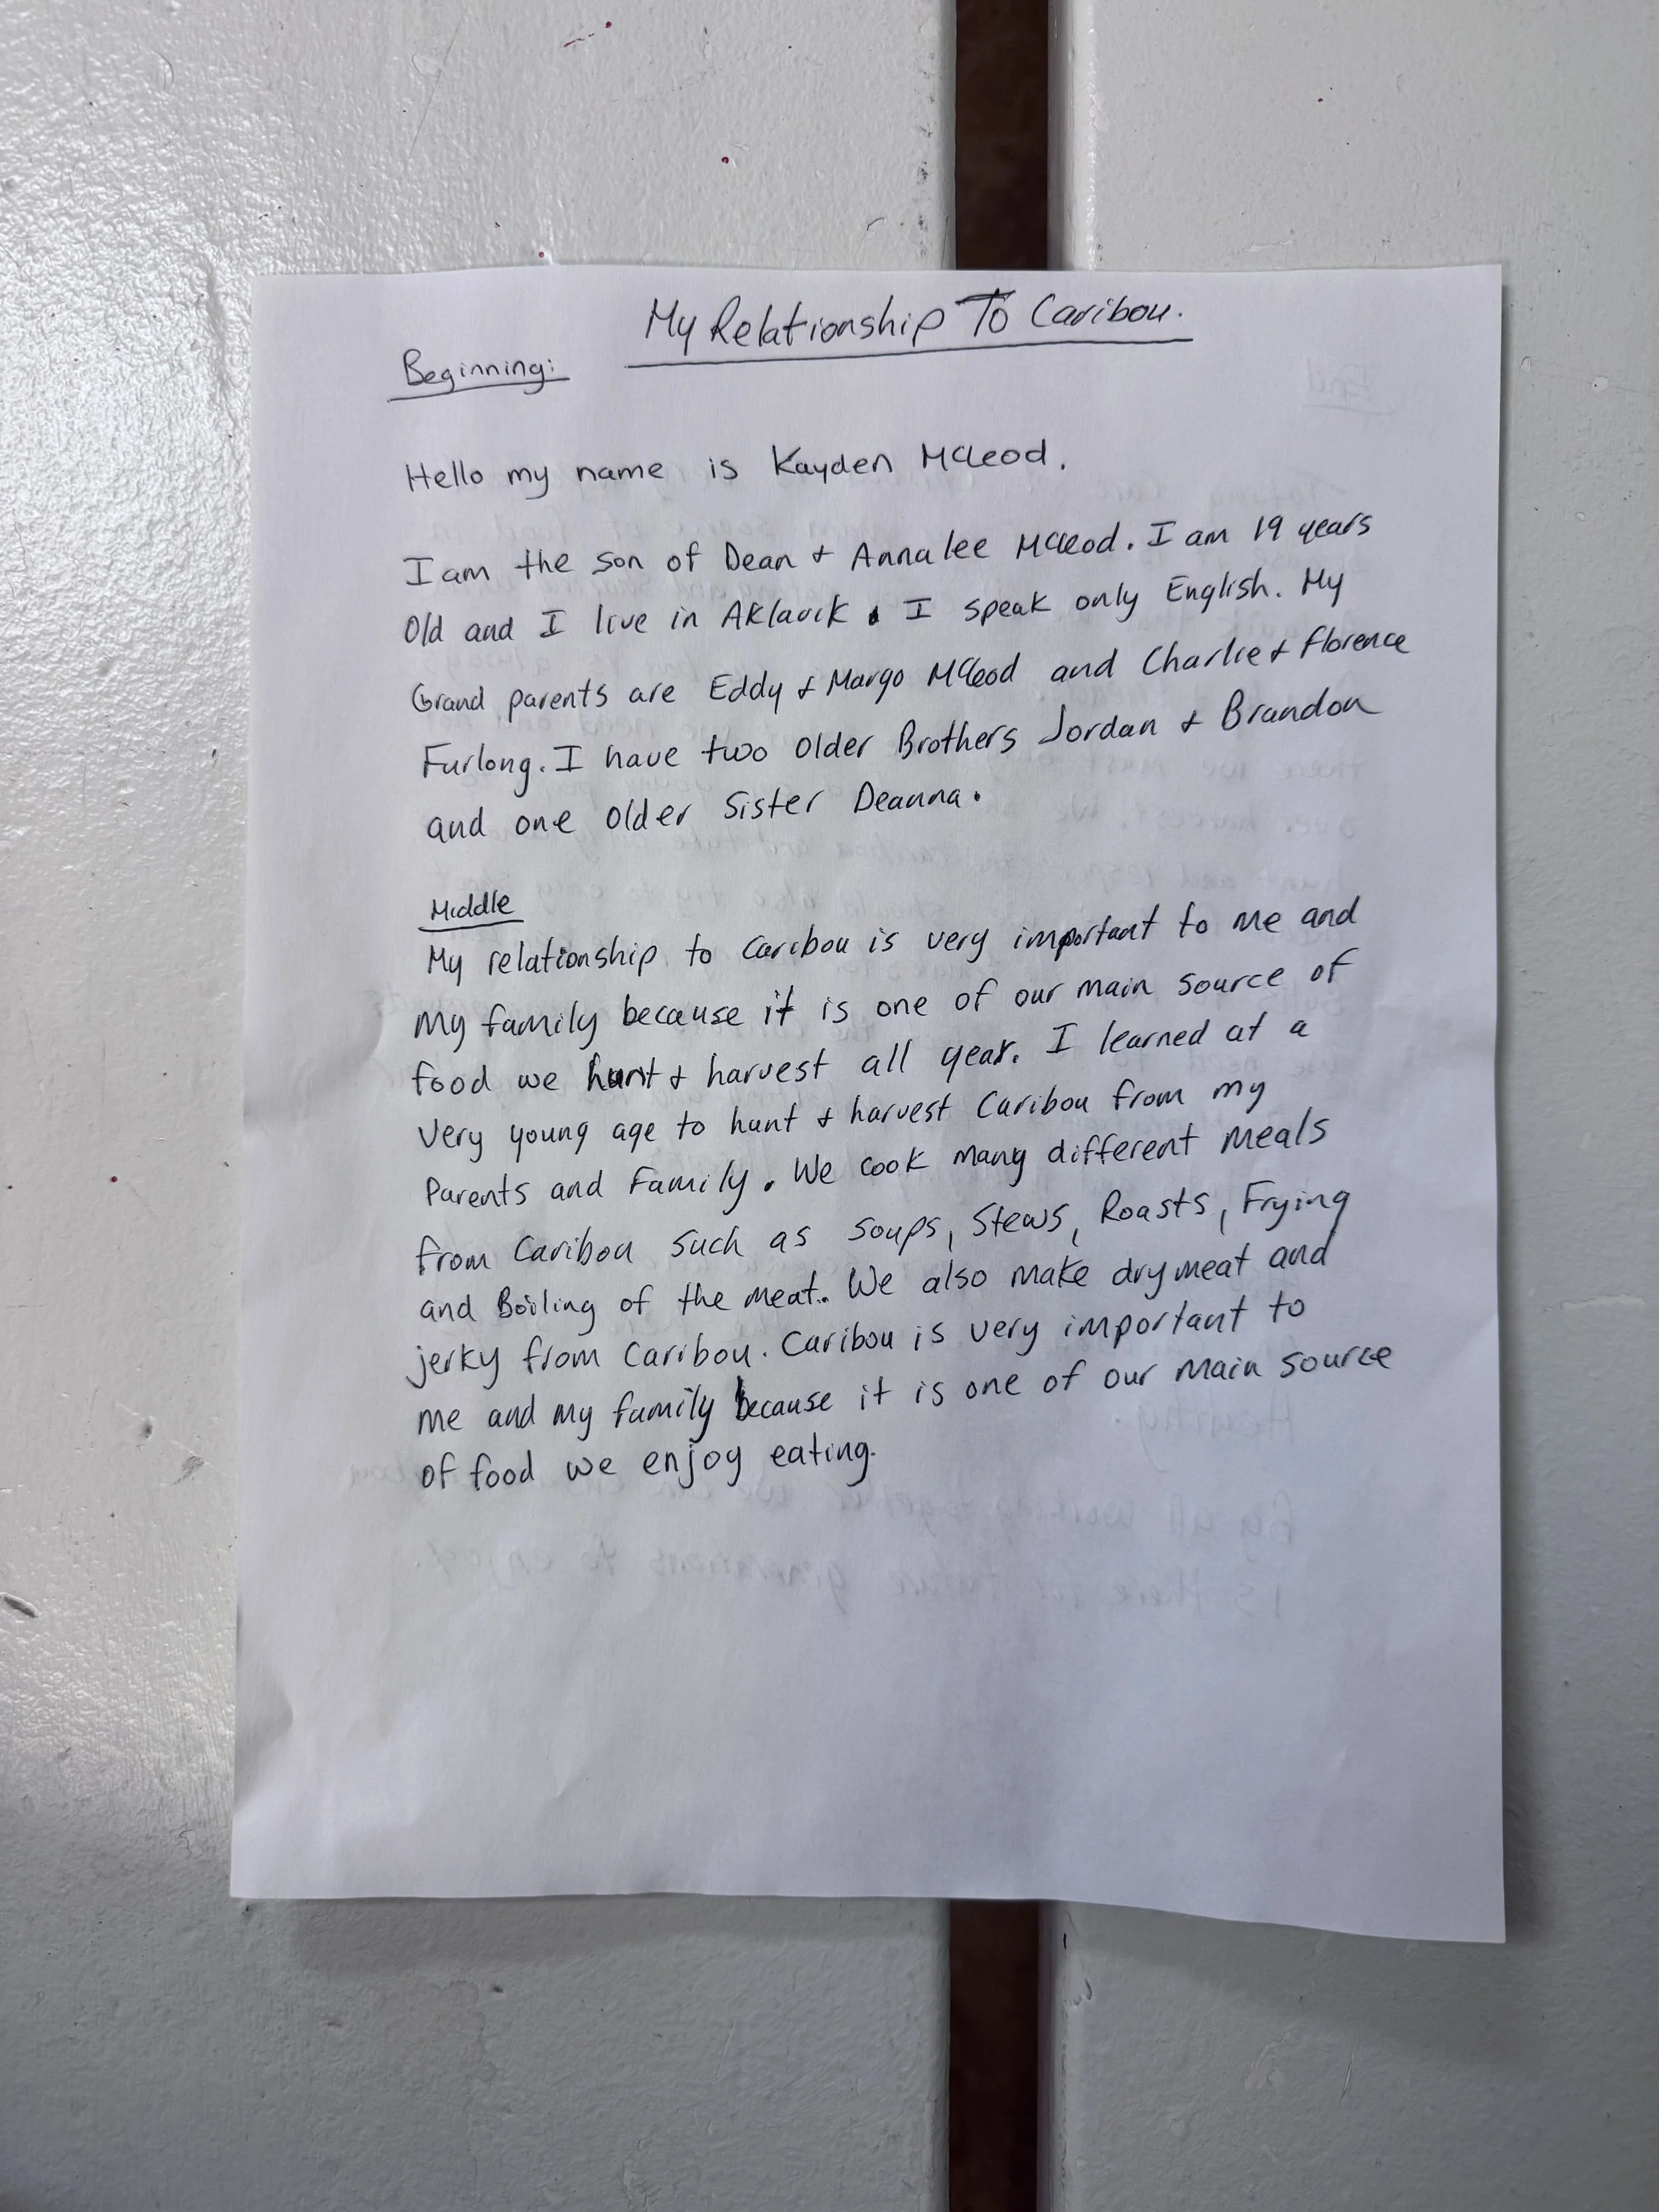 My Relationship To Caribou.
Beginning:
Hello my name is Kayden McLeod.
I am the son of Dean + Annalee McLeod. I am 19 years
Old and I live in Aklavik. I speak only English. My
Grand parents are Eddy + Margo McLeod and Charlie + Florence
Furlong. I have two older Brothers Jordan + Brandon
and one older Sister Deanna.
Middle
My relationship to Caribou is very important to me and
my family because it is one of our main source of
food we hunt + harvest all year. I learned at a
very young age to hunt + harvest Caribou from my
Parents and Family. We cook many different meals
from Caribou such as soups, Stews, Roasts, Frying
and Boiling of the meat. We also make drymeat and
jerky from Caribou. Caribou is very important to
me and my family because it is one of our main source
of food we enjoy eating.